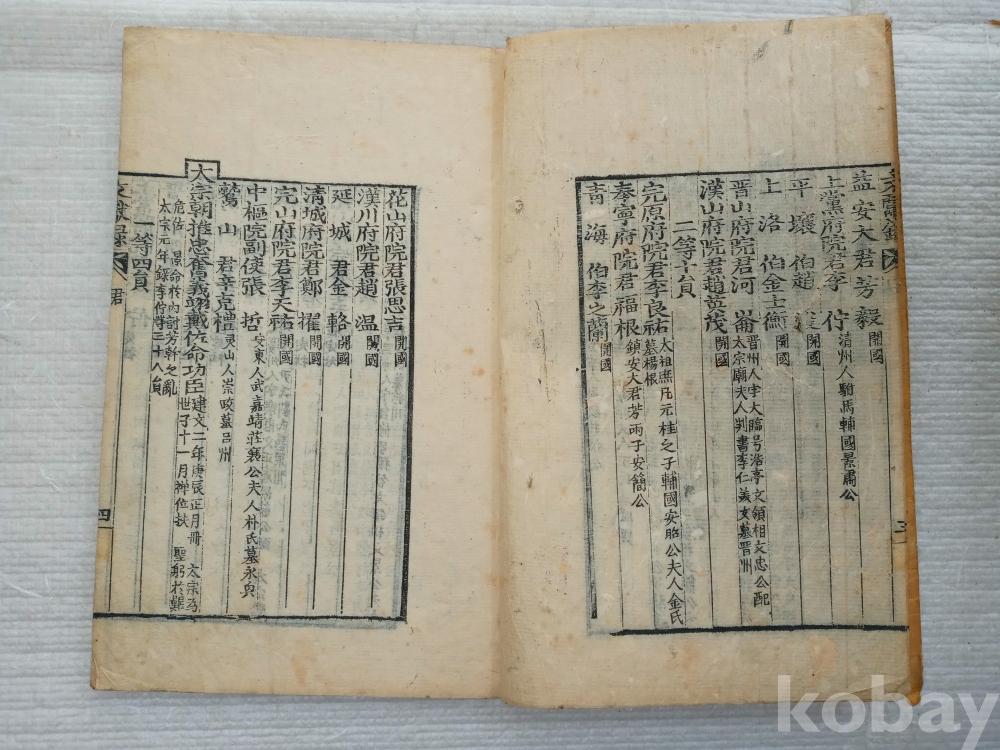 益安大君芳毅 開國
上黨府院君李佇 清州人駙馬輔國景肅公
平壤伯趙 開國
上洛伯金士衡 開國
晋山府院君河崙 晋州人字大臨号浩亭文領相文忠公配
太宗廟夫人判書李仁美女墓晋州
漢山府院君趙英茂 開國
二等十員
完原府院君李良祐 大祖庶兄元桂之子輔國安昭公夫人金氏
墓楊根
奉寧府院君福根 鎮安大君芳雨子安簡公
青海伯李之蘭 開國
三
花山府院君張思吉 開國
漢川府院君趙温 開國
延城君金輅 開國
清城府院君鄭擢 開國
完山府院君李天祐 開國
中樞院副使張哲 安東人武嘉靖莊襄公夫人朴氏墓永興
鷲山君辛克禮 灵山人崇墓吕州
大宗朝推忠奮義翊戴佐命功臣 建文二年庚辰正月冊太宗為
世子十一月禅位扶聖躬於艱
危佑景命於内討芳幹之亂
太宗元年錄李佇等三十八員
一等四員
文獻錄
君
四
kobay